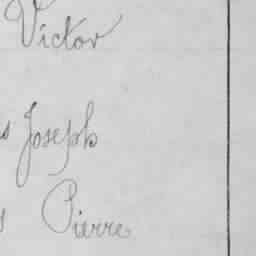 Victor
s Joseph
s Pierre